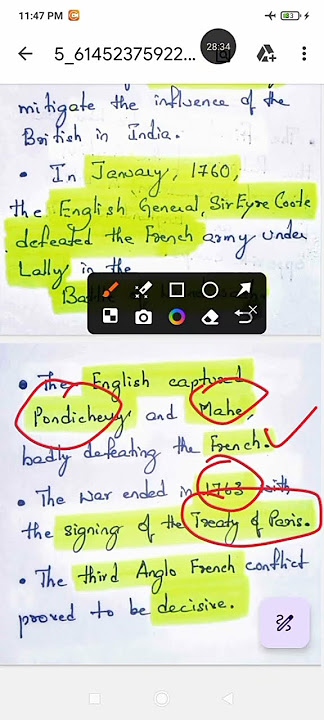 11:47 PM
83
5_61452375922...
28:34
mitigate the influence of the
British in India.
• In January, 1760,
the English General, Sir Eyre Coote
defeated the French army under
Lally in the
• The English captured
Pondicherry and Mahe,
badly defeating the French.
• The war ended in 1763 with
the signing of the Treaty of Paris.
• The third Anglo French conflict
proved to be decisive.